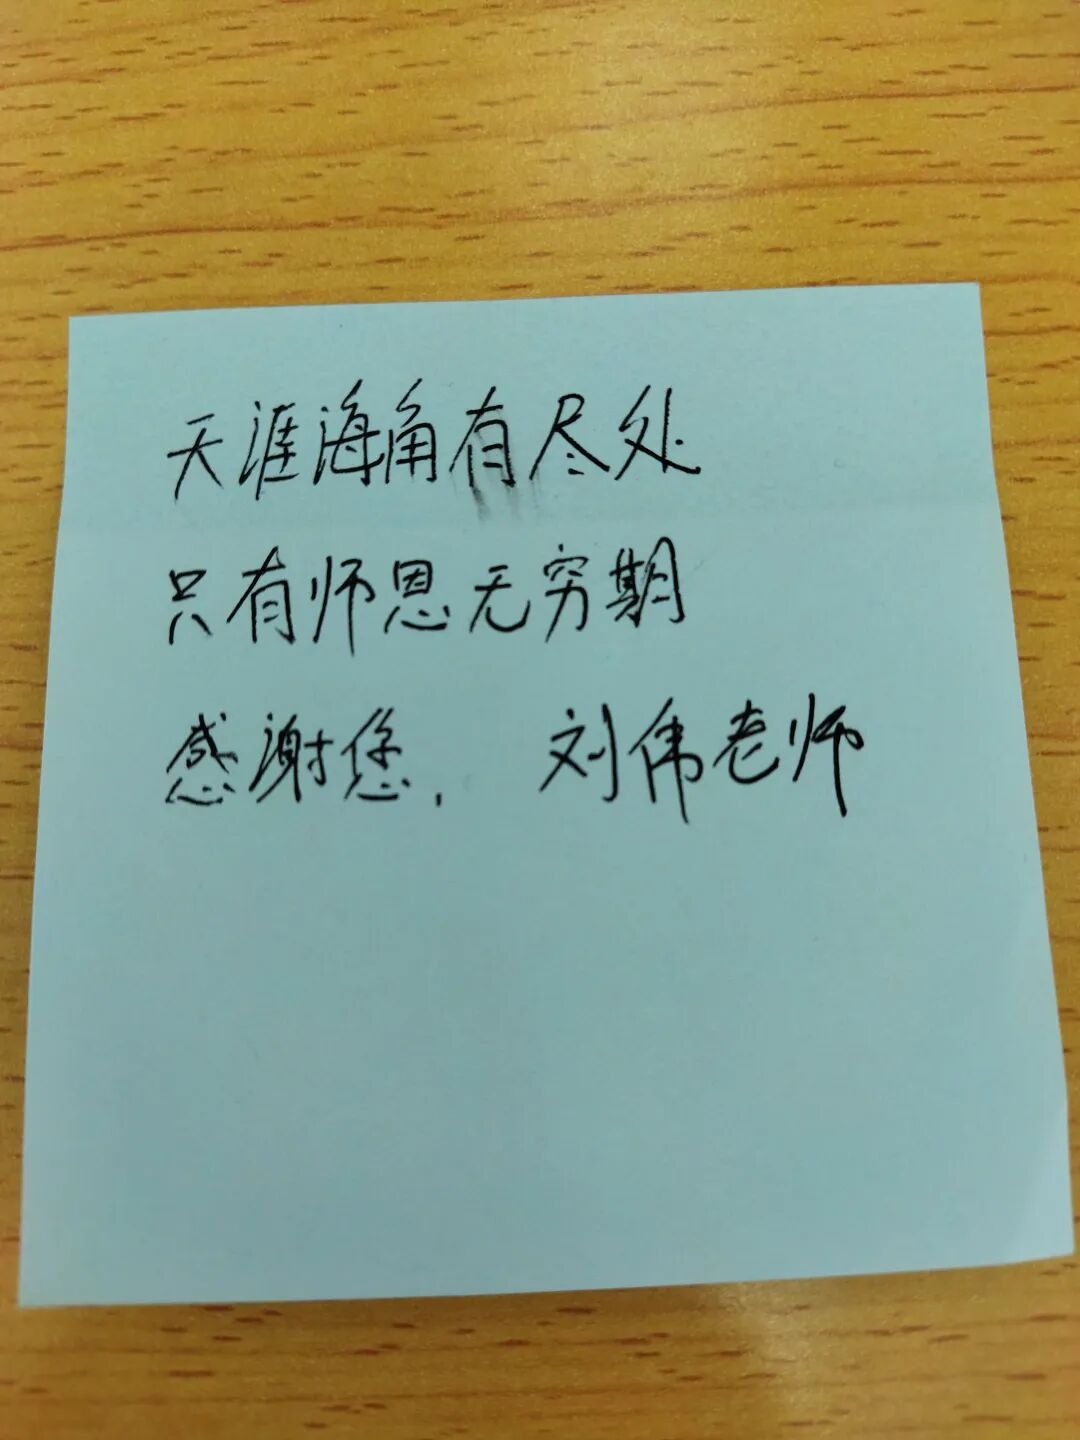 天涯海角有尽处
只有师恩无穷期
感谢您, 刘伟老师